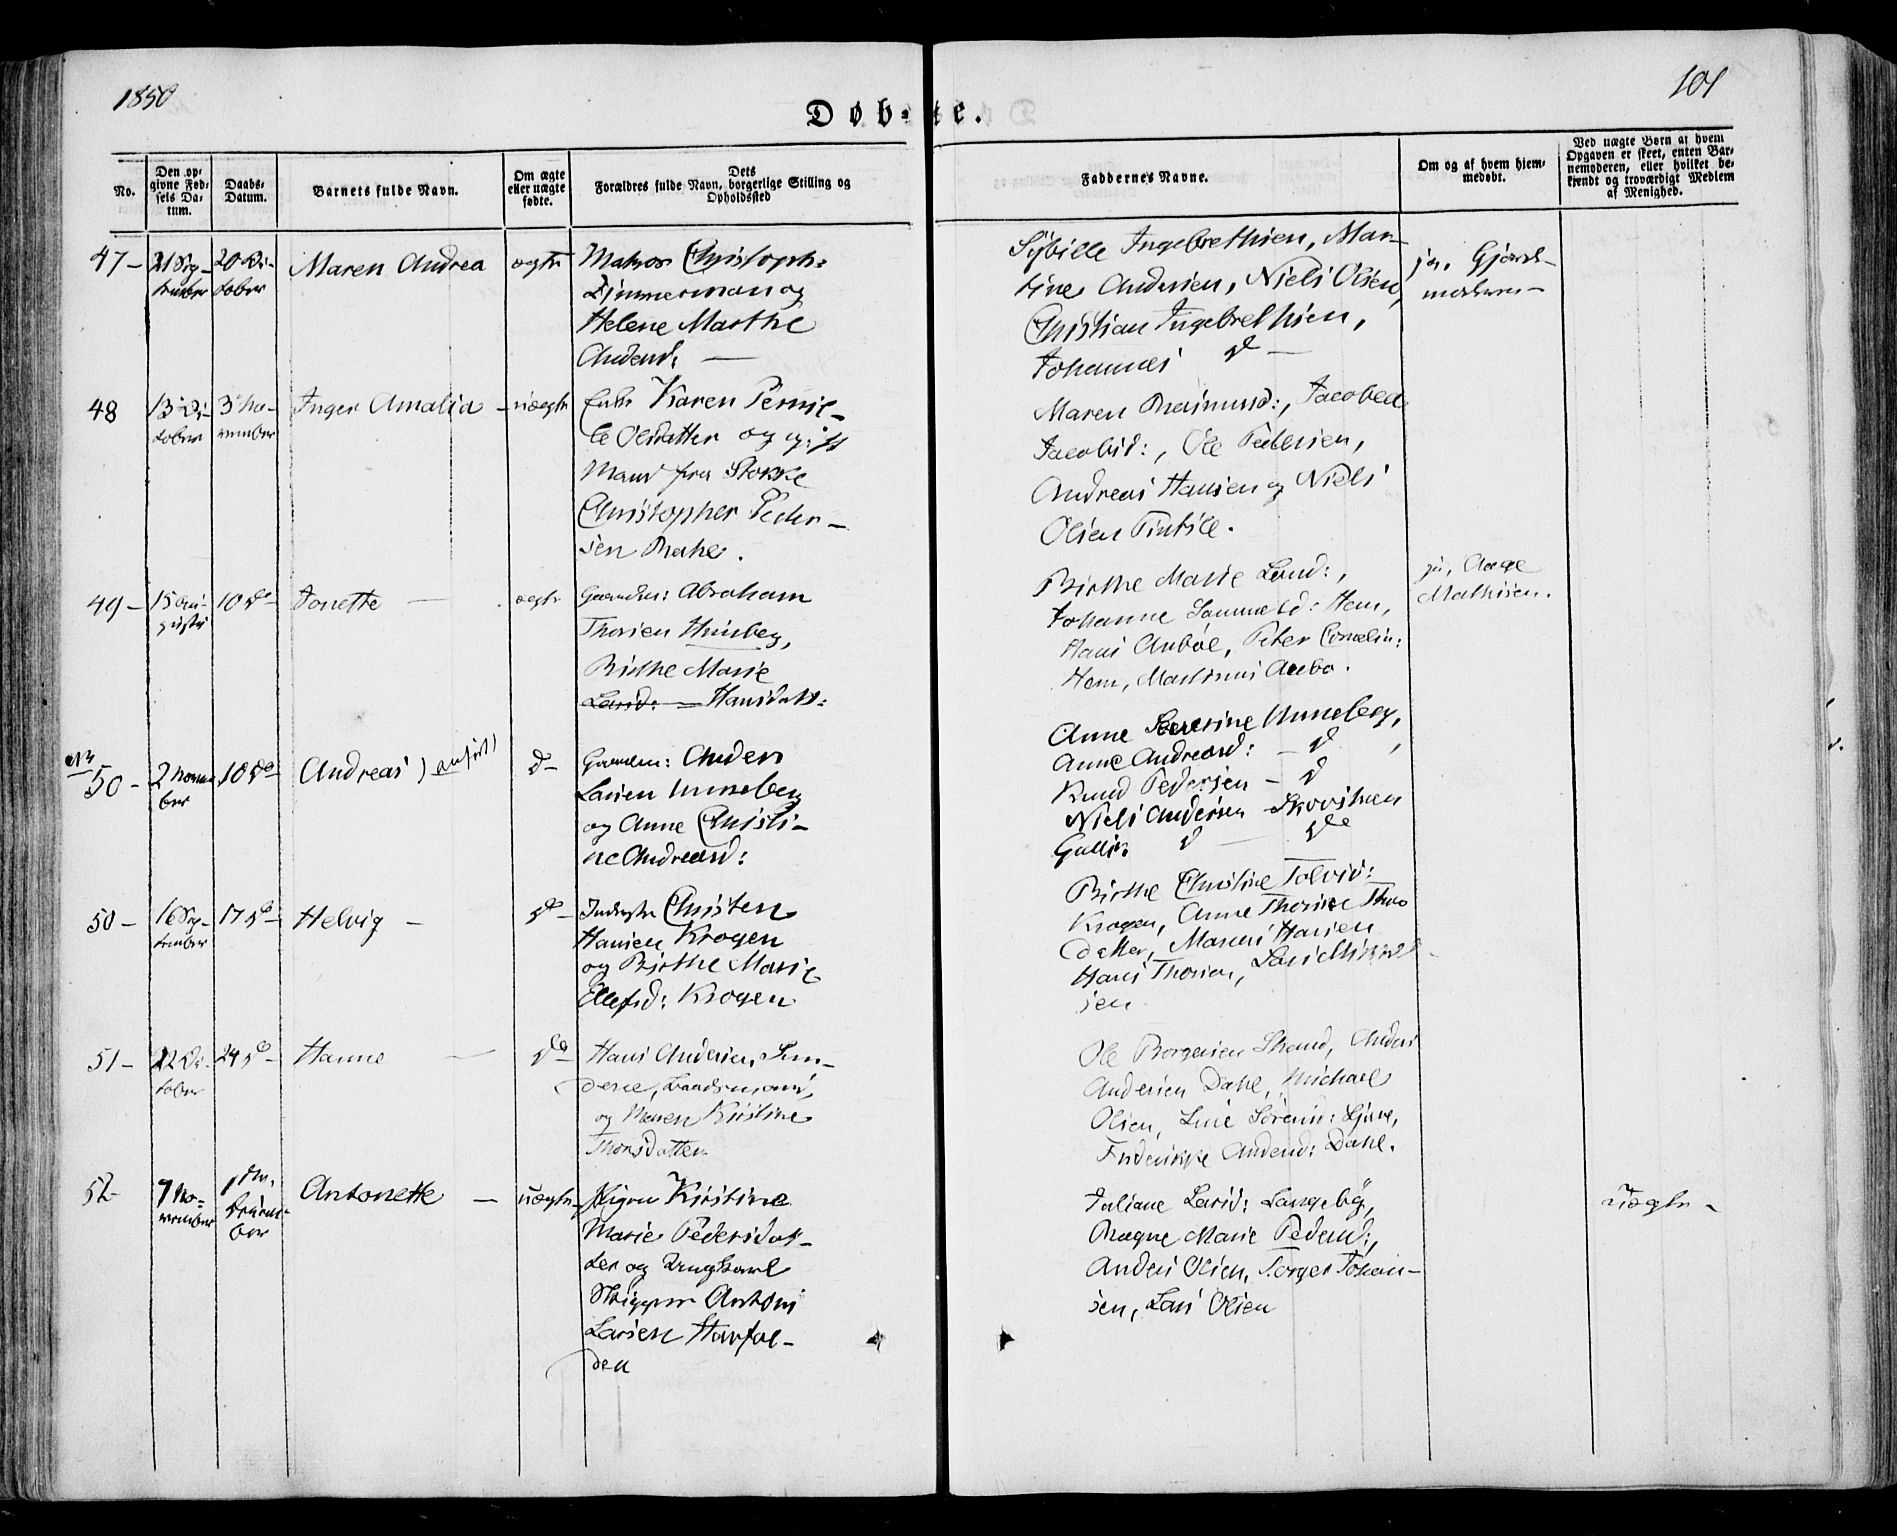 1850
101
Døb-te.
No.
Den op-
givne Fød-
sels Da-
tum.
Daabs-
Datum.
Barnets fulde Navn.
Om ægte
eller uægte
fødte.
Dets
Forældres fulde Navn, borgerlige Stilling og
Opholdssted
Faddernes Navne.
Om og af hvem hjem-
medøbt.
Ved uægte Børn at hvem
Opgaven er skeet, enten Bar-
nemoderen, eller hvilket be-
kjendt og troværdigt Medlem
af Menighed.
47- 21 Sep-
tember
20 Oc-
tober
Maren Andrea
ægte
Matros Christoph:
Zimmerman og
Helene Marthe
Andersd:
Sybille Ingebrethsen, Mar-
tine Andersen, Niels Olsen,
Christian Ingebrethsen,
Johannes do -
ja, Gjord-
moderen-
48
13 Oc-
tober
3 No-
vember
Inger Amalia -
uægte
Karen Pernil-
le Olsdatter og gift
Mand fra Stokke
Christopher Peder-
sen
Maren Rasmusd:, Jacobea
Jacobsd:, Ole Pedersen,
Andreas Hansen og Niels
Olsen
49- 15 Au-
gusti
10 do
Jonette -
ægte
Gaardm: Abraham
Thorsen Unneberg,
Birthe Marie
Larsd: - Hansdatt:
Birthe Marie Larsd:,
Johanne Sammeld: Hem,
Hans Aaboe, Peter Cornelius:
Hem, Martinus Aabo.
ja, Aage
Mathisen.
NB
50- 2 Novem-
ber
10 do
Andreas) anført)
do-
Gaardm: Anders
Larsen Unneberg
og Anne Christi-
ne Andreasd:
Anne Severine Unneberg,
Anne Andreasd: - do,
Knud Pedersen - do
Niels Andersen
do do
50- 16 Sep-
tember
17 do-
Helvig -
do-
Inderste Christen
Hansen Krogen
og Birthe Marie
Ellefsd: Krogen
Birthe Christine
Krogen, Anne Thorine Thors
datter, Hansen
Hans Thorsen, Lars Mikkel-
sen
51- 22 Oc-
tober
24 do-
Hanne -
do-
Hans Andersen, Sun-
dene,
og Maren Kirstine
Thorsdatter
Ole Borgersen Strand, Anders
Andersen Dahl, Michael
Olsen, Line Sørensd:
Frederikke Andersd: Dahl.
52- 7 No-
vember
1ste De-
cember
Antonette -
uægte
Pigen Kirstine
Marie Pedersdat-
ter og Ungkarl
Skipper Antoni
Larsen
Juliane Larsd:
Magne Marie Pedersd:,
Anders Olsen, Torger Johan-
sen, Lars Olsen
uægte -